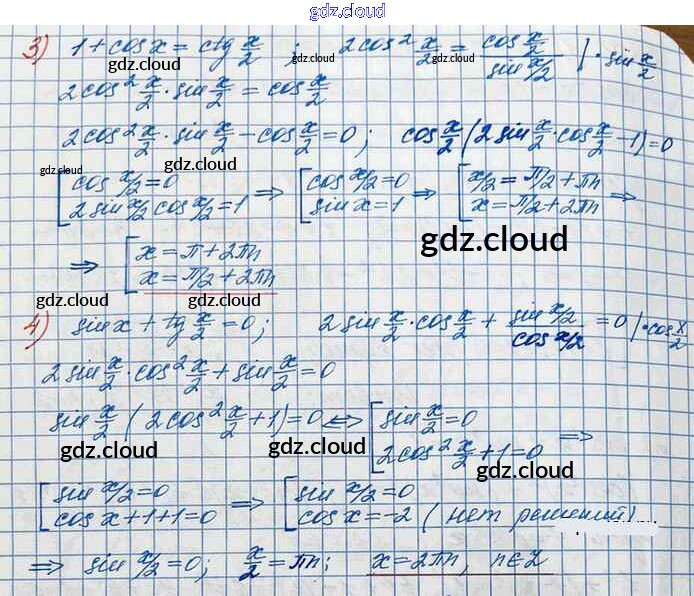 gdz.cloud
3) 1 + cos x = ctg x/2 ; 2cos² x/2 = cos x/2 / sin x/2 | · sin x/2
gdz.cloud gdz.cloud gdz.cloud
2cos² x/2 · sin x/2 = cos x/2
2cos² x/2 · sin x/2 − cos x/2 = 0; cos x/2 (2 sin x/2 · cos x/2 − 1) = 0
gdz.cloud gdz.cloud
[ cos x/2 = 0 ⇒ [ cos x/2 = 0 ⇒ [ x/2 = π/2 + πn ⇒
2 sin x/2 cos x/2 = 1 sin x = 1 x = π/2 + 2πn
gdz.cloud
⇒ [ x = π + 2πn
x = π/2 + 2πn
gdz.cloud gdz.cloud
4) sin x + tg x/2 = 0; 2 sin x/2 · cos x/2 + sin x/2 / cos x/2 = 0 | · cos x/2
2 sin x/2 · cos² x/2 + sin x/2 = 0
sin x/2 ( 2cos² x/2 + 1) = 0 ⇔ [ sin x/2 = 0
2cos² x/2 + 1 = 0 ⇒
gdz.cloud gdz.cloud gdz.cloud
[ sin x/2 = 0 ⇒ [ sin x/2 = 0
cos x + 1 + 1 = 0 cos x = −2 (нет решений)
⇒ sin x/2 = 0; x/2 = πn; x = 2πn, n∈Z